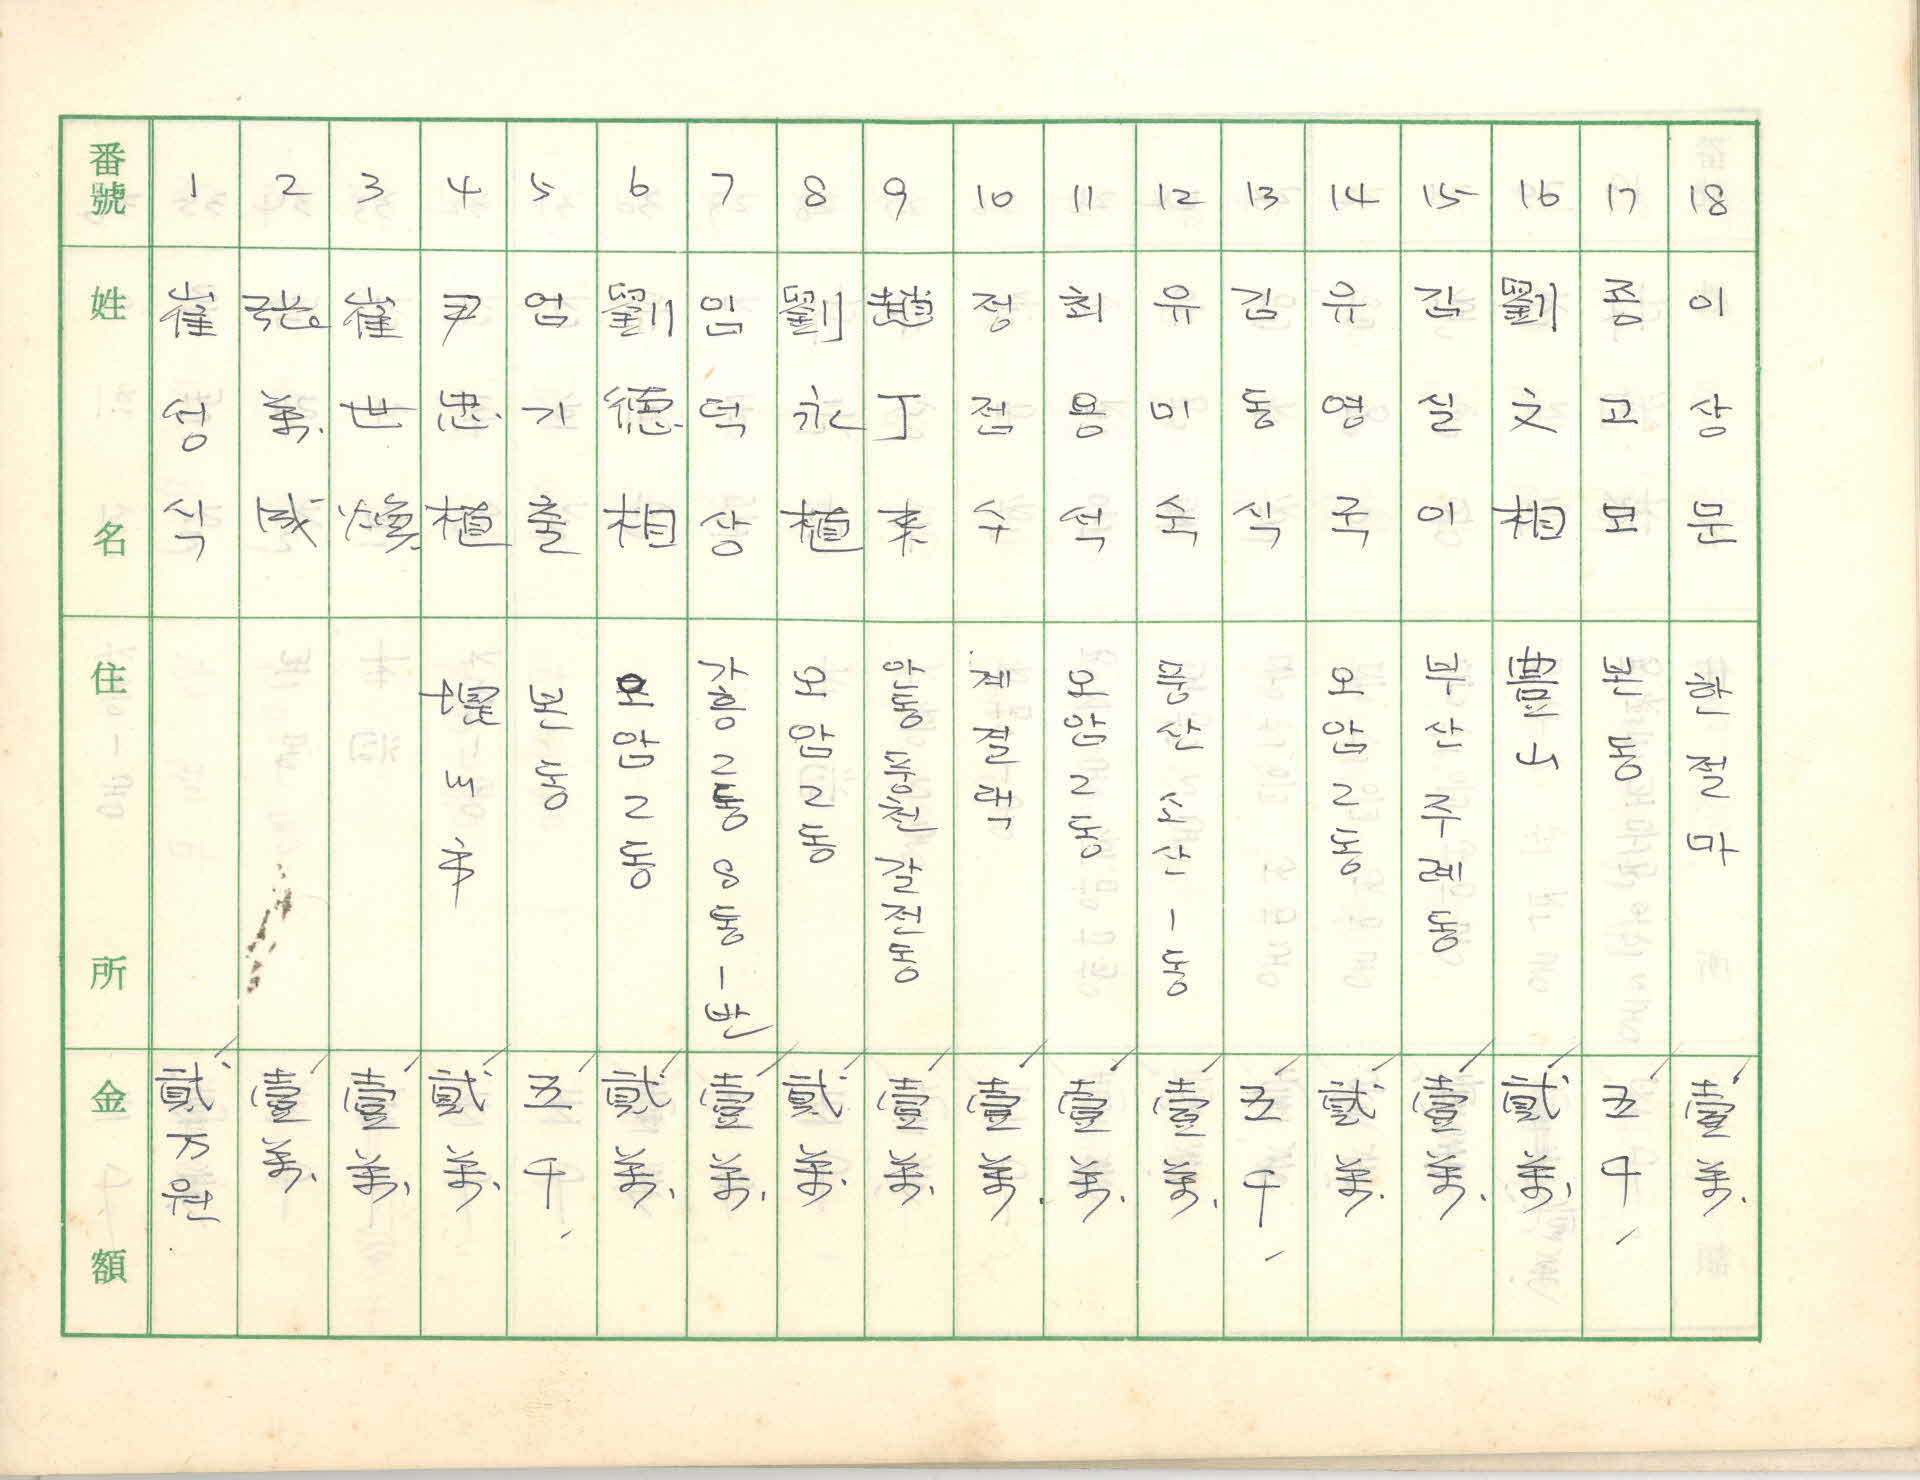 番號 姓名 住所 金額
1 崔성식 貳万원
2 張萬成 壹萬
3 崔世煥 壹萬
4 尹忠植 堤川市 貳萬
5 엄기출 본동 五千
6 劉德相 오암2동 貳萬
7 임덕상 가흥2동 8통 一반 壹萬
8 劉永植 오암2동 貳萬
9 趙丁來 안동 풍천 갈전동 壹萬
10 정점수 제절댁 壹萬
11 최용석 오암2동 壹萬
12 유미숙 풍산 소산一동 壹萬
13 김동식 五千
14 유영국 오암2동 貳萬
15 김실이 부산 주례동 壹萬
16 劉文相 豊山 貳萬
17 종고모 본동 五千
18 이상문 한절마 壹萬